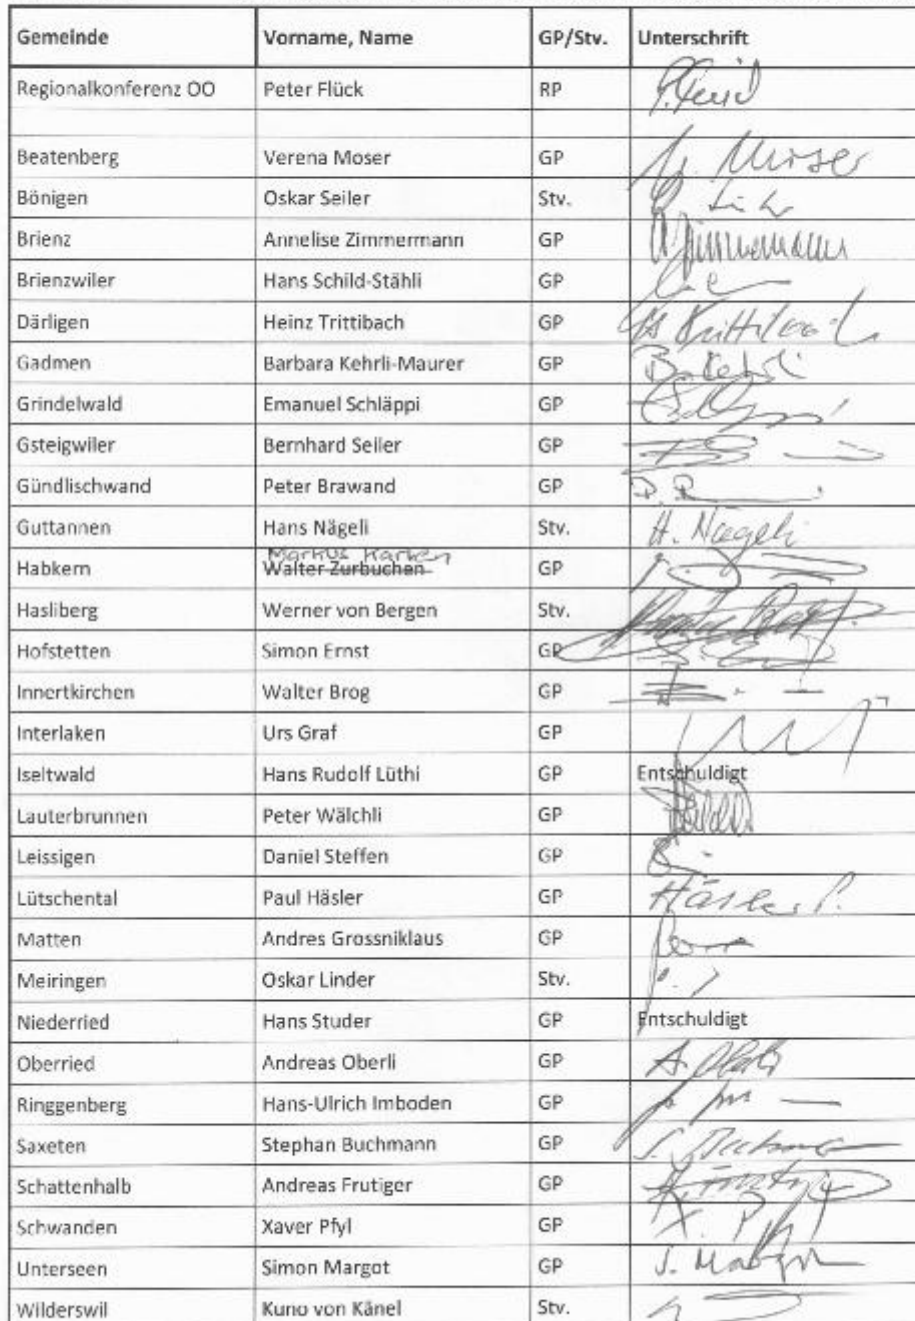 Gemeinde Vorname, Name GP/Stv. Unterschrift
Regionalkonferenz OO Peter Flück RP
Beatenberg Verena Moser GP V. Moser
Bönigen Oskar Seiler Stv.
Brienz Annelise Zimmermann GP A. Zimmermann
Brienzwiler Hans Schild-Stähli GP
Därligen Heinz Trittibach GP
Gadmen Barbara Kehrli-Maurer GP B. Kehrli
Grindelwald Emanuel Schläppi GP
Gsteigwiler Bernhard Seiler GP
Gündlischwand Peter Brawand GP
Guttannen Hans Nägeli Stv. H. Nägeli
Markus
Habkern Walter Zurbuchen GP
Hasliberg Werner von Bergen Stv.
Hofstetten Simon Ernst GP
Innertkirchen Walter Brog GP
Interlaken Urs Graf GP
Iseltwald Hans Rudolf Lüthi GP Entschuldigt
Lauterbrunnen Peter Wälchli GP
Leissigen Daniel Steffen GP
Lütschental Paul Häsler GP Häsler P.
Matten Andres Grossniklaus GP
Meiringen Oskar Linder Stv.
Niederried Hans Studer GP Entschuldigt
Oberried Andreas Oberli GP A. Oberli
Ringgenberg Hans-Ulrich Imboden GP
Saxeten Stephan Buchmann GP S. Buchmann
Schattenhalb Andreas Frutiger GP A. Frutiger
Schwanden Xaver Pfyl GP X. Pfyl
Unterseen Simon Margot GP S. Margot
Wilderswil Kuno von Känel Stv.